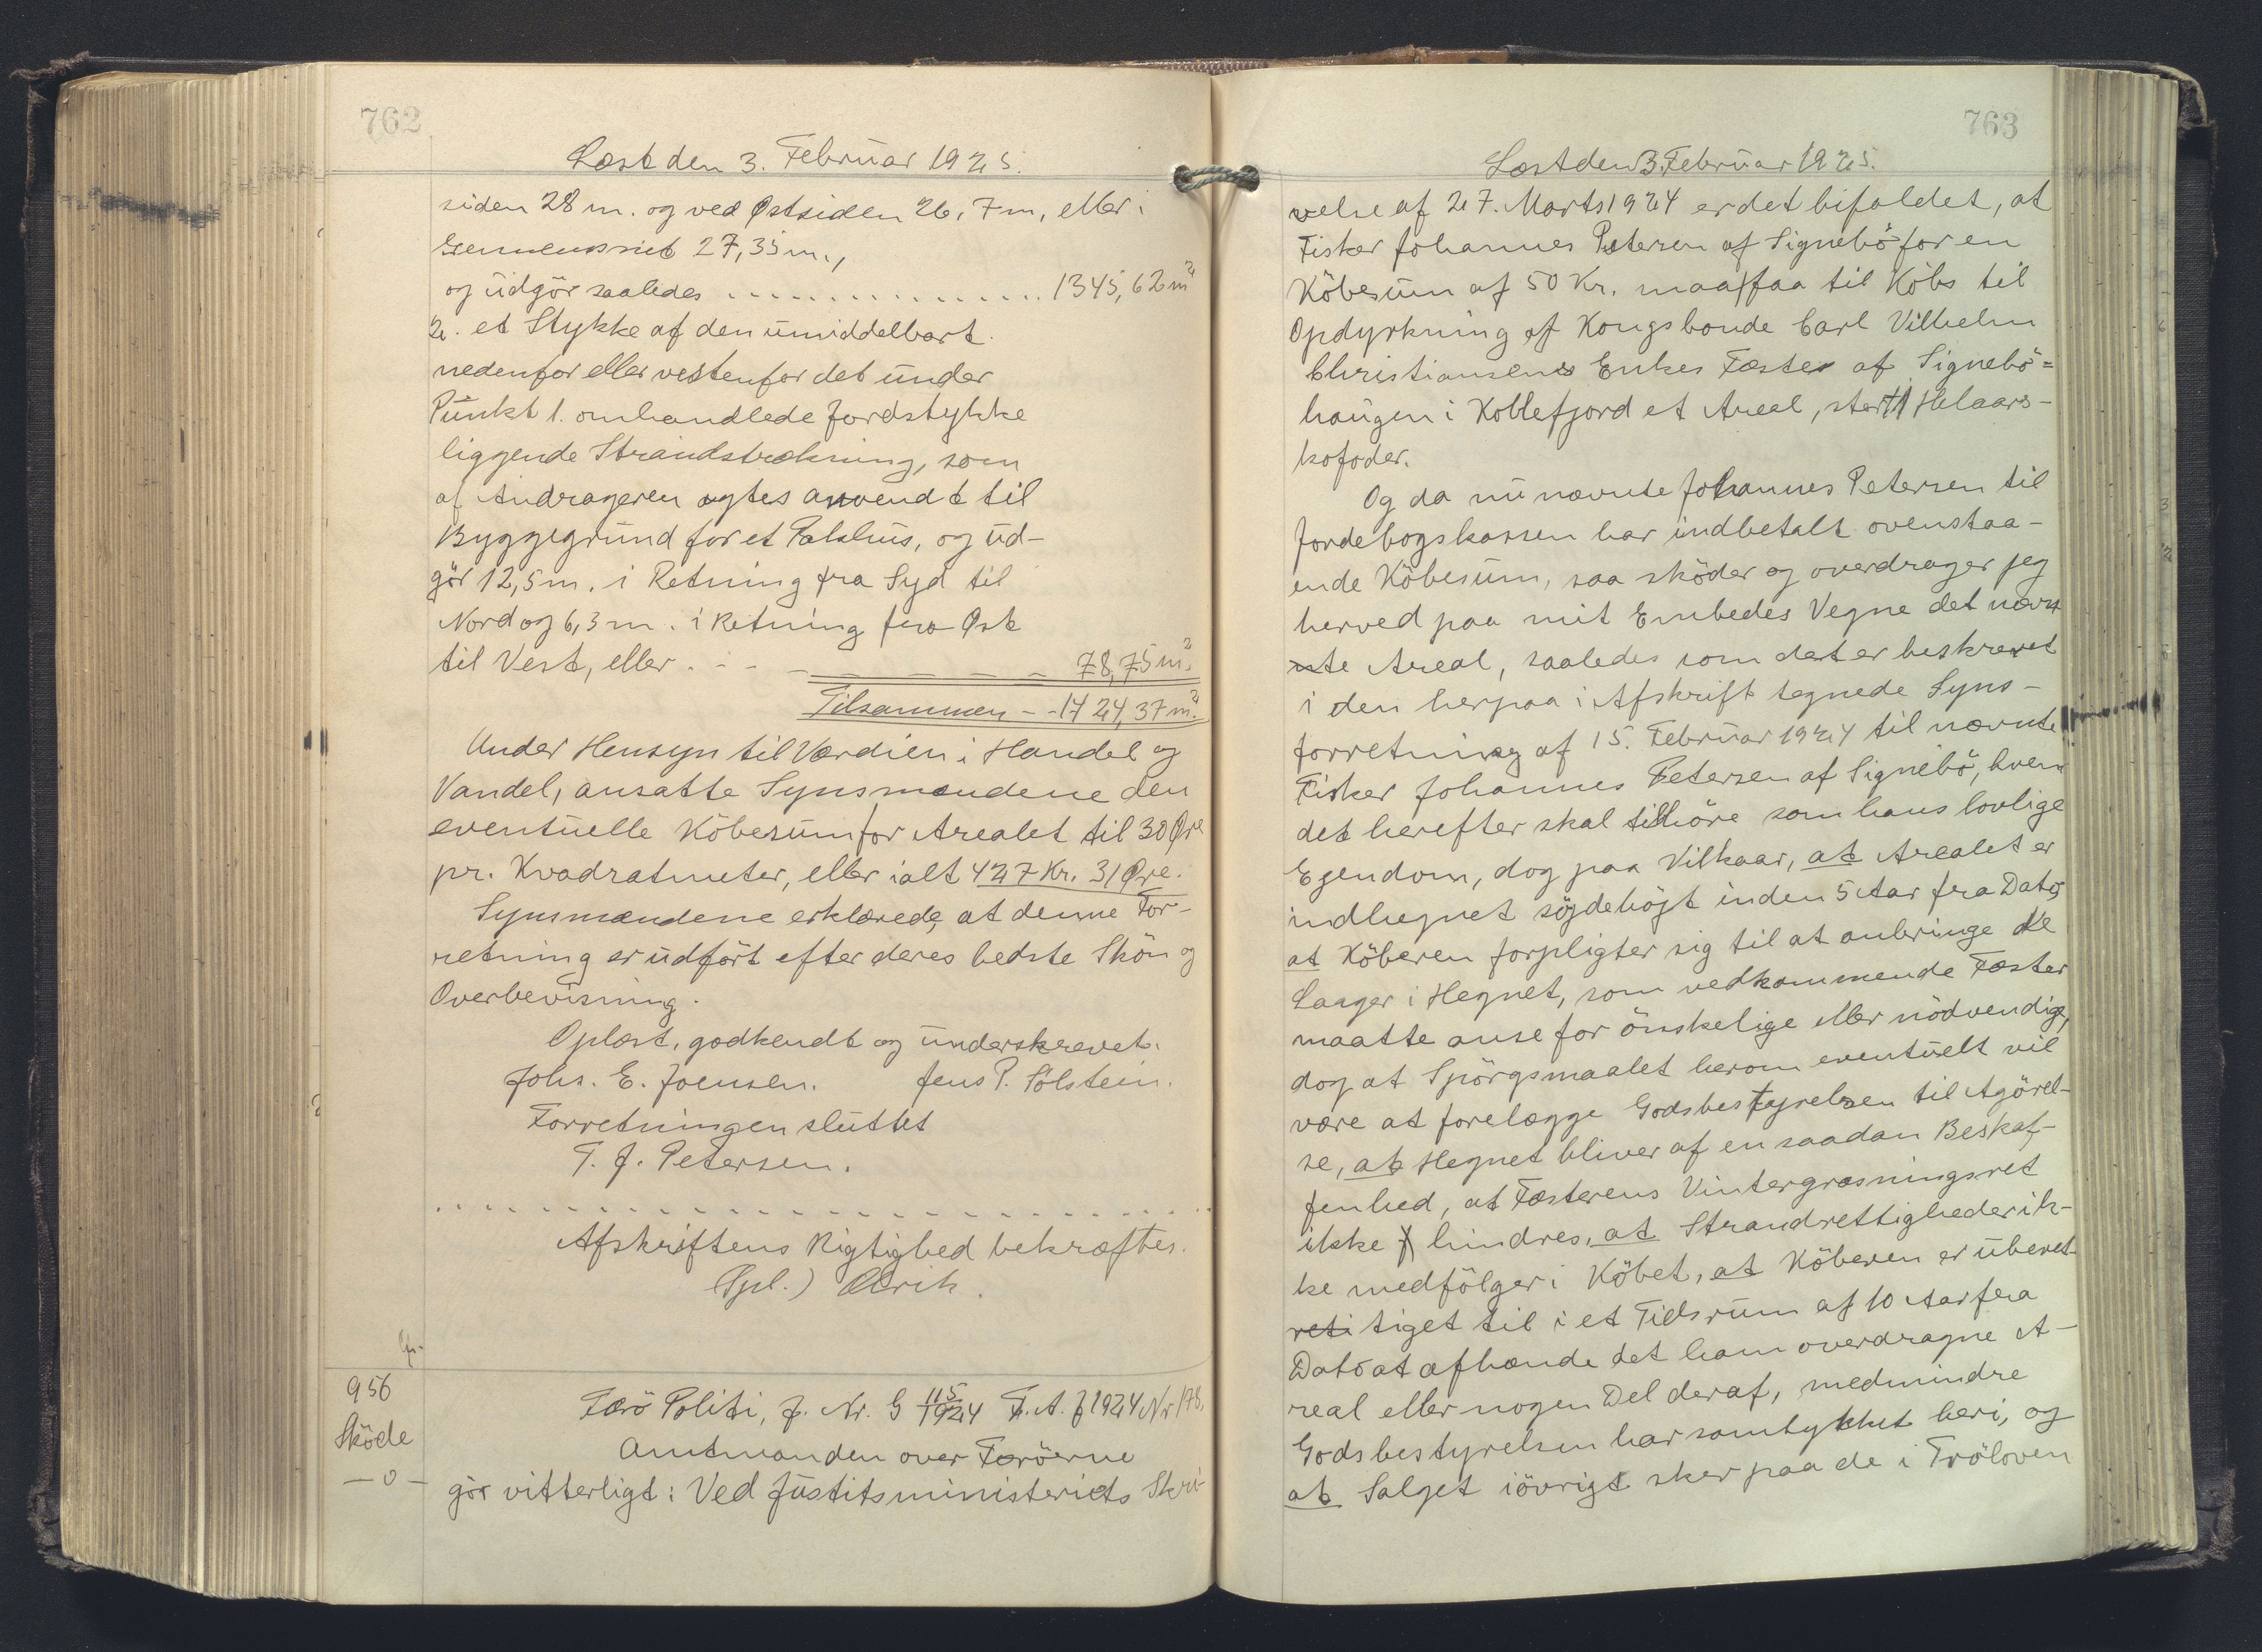 762
Læst den 3. Februar 1925.
siden 28 m. og ved Østsiden 26,7 m, eller i
Gennemsnit 27,35 m.,
og udgör saaledes ................ 1345,62 m²
2. et Stykke af den umiddelbart
nedenfor eller vestenfor det under
Punkt 1. omhandlede Jordstykke
liggende Strandstrækning, som
af Andrageren agtes anvendt til
Byggegrund for et Pakhus, og ud-
gör 12,5 m. i Retning fra Syd til
Nord og 6,3 m. i Retning fra Øst
til Vest, eller . - - - - - - - 78,75 m².
Tilsammen - - 1424,37 m².
Under Hensyn til Værdien i Handel og
Vandel, ansatte Synsmændene den
eventuelle Köbesum for Arealet til 30 Øre
pr. Kvadratmeter, eller ialt 427 Kr. 31 Øre.
Synsmændene erklærede, at denne For-
retning er udfört efter deres bedste Skön og
Overbevisning.
Oplæst, godkendt og underskrevet.
Johs. E. Joensen. Jens P. Sólstein.
Forretningen sluttet
T. J. Petersen.
Afskriftens Rigtighed bekræftes.
(Spl.)
956
Sköde
— 0 —
Færö Politi, J. Nr. G 115/1924 F. A. J 1924 Nr 178.
Amtmanden over Færöerne
gör vitterligt: Ved Justitsministeriets Skri-
763
Læst den 3. Februar 1925.
velse af 27. Marts 1924 er det bifaldet, at
Fisker Johannes Petersen af Signebö for en
Köbesum af 50 Kr. maa faa til Köbs til
Opdyrkning af Kongsbonde Carl Vilhelm
Christiansens Enkes Fæste af Signebö=
haugen i Kollefjord et Areal, stort 1 Helaars-
kofoder.
Og da nu nævnte Johannes Petersen til
Jordebogskassen har indbetalt ovenstaa-
ende Köbesum, saa sköder og overdrager jeg
herved paa mit Embedes Vegne det nævn-
nte Areal, saaledes som det er beskrevet
i den herpaa i Afskrift tegnede Syns-
forretning af 15. Februar 1924 til nævnte
Fisker Johannes Petersen af Signebö, hvem
det herefter skal tilhöre som hans lovlige
Ejendom, dog paa Vilkaar, at Arealet er
indhegnet söjdehöjt inden 5 Aar fra Dato,
at Köberen forpligter sig til at anbringe de
Laager i Hegnet, som vedkommende Fæster
maatte anse for önskelige eller nödvendige,
dog at Spörgsmaalet herom eventuelt vil
være at forelægge Godsbestyrelsen til Agörel-
se, at Hegnet bliver af en saadan Beskaf-
fenhed, at Fæsterens Vintergræsningsret
ikke hindres, at Strandrettigheder ik-
ke medfölger i Köbet, at Köberen er uberet-
reti tiget til i et Tidsrum af 10 Aar fra
Dato at afhænde det ham overdragne A-
real eller nogen Del deraf, medmindre
Godsbestyrelsen har samtykket heri, og
at Salget iövrigt sker paa de i Fröloven